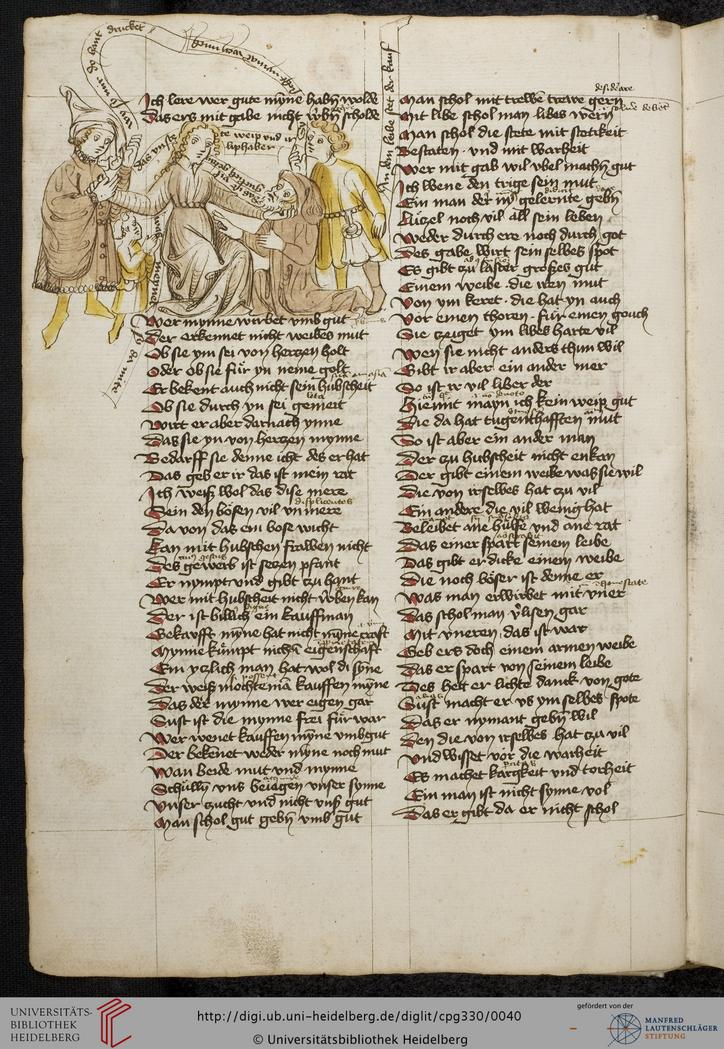 Ich lere wer gute mÿne habn wolde
Das ers mit gabe nicht scholde
Wer mynne wirbet vmb gut
Der erkennet nicht weibes mut
Ob sie ym sei von herczen holt
Oder ob sie für yn neme golt
Er bekent auch nicht sein hubscheit
Ob sie durch yn sei gemeit
Wirt er aber darnach ynne
Das sie yn von herczen mynne
Bedarff sie denne icht des er hat
Das geb er ir das ist mein rat
Ich weiß wol das dise mere
Sein den bösen vil vnmere
Da von das ein bose wicht
Kan mit hubschen frawen nicht
Des gewerb ist seczen pfant
Er nympt vnd gibt czu hant
Wer mit hubscheit nicht kan
Der ist billich ein kauffman
Bekaufft mÿne hat nicht mÿne craft
Mynne kümpt nicht eigenschafft
Ein yczlich man hat wol di sÿne
Der weiß möchte kauffen mÿne
Das der mynne wer eigen gar
Sust ist die mynne frei für war
Wer wenet kauffen mÿne vmb gut
Der bekennet weder mÿne noch mut
Wan beide mut vnd mynne
Schülln vns beiagen vnser synne
Vnser zucht vnd nicht vnß gut
Man schol gut gebn vmb gut
desiderare
Man schol mit trewen trewe gern
Mit libe schol man libes
Man schol die stete mit stetikeit
Bestaten vnd mit warheit
Wer mit gab wil vbel machn gut
Ich wene den trige sein mut
Ein man der gelernte gebn
Lüczel noch vil all sein leben
Weder durch ere noch durch got
Des gabe wirt sein selbes spot
Es gibt czu laster großes gut
Einem weibe die iren mut
Von ym keret die hat yn auch
Vor einen thoren für einen gouch
Sie czeiget ym libes harte vil
Wen sie nicht anders thun wil
Gibt ir aber ein ander mer
So ist ir vil liber der
Hie mit mayn ich kein weip gut
Die da hat tugenthafften mut
So ist aber ein ander man
Der czu hubscheit nicht enkan
Der gibt einem weibe was sie wil
Die von irselbes hat czu vil
Ein andere die vil wenig hat
Beleibet ane hülffe vnd ane rat
Das einer spart seinem leibe
Das gibt er dicke einem weibe
Die noch böser ist denne er
Was man erwirbet mit vner
Das schol man gar
Mit vneren das ist war
Geb ers doch einem armen weibe
Das er spart von seinem leibe
Des het er lichte danck von gote
Sust macht er vs ym selbes spote
Das er nymant gebn wil
Den die von irselbes hat czu vil
Vnd wisset vor die warheit
Es machet kargkeit vnd torheit
Ein man ist nicht synne vol
Das er gibt da er nicht schol
UNIVERSITÄTS-
BIBLIOTHEK
HEIDELBERG
http://digi.ub.uni-heidelberg.de/diglit/cpg330/0040
© Universitätsbibliothek Heidelberg
gefördert von der
MANFRED
LAUTENSCHLÄGER
STIFTUNG